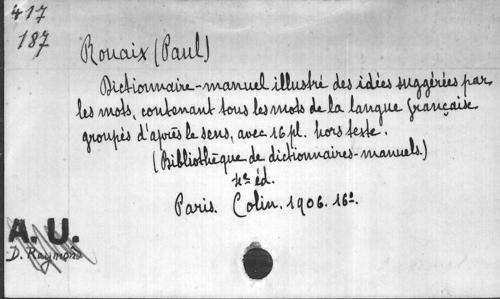 417
187
Rouaix (Paul)
Dictionnaire-manuel illustré des idées suggérées par
les mots, contenant tous les mots de la langue française
groupés d'après le sens, avec 16 pl. hors texte.
(Bibliothèque de dictionnaires-manuels.)
4e éd.
Paris. Colin. 1906. 16º.
A. U.
D. Raymond